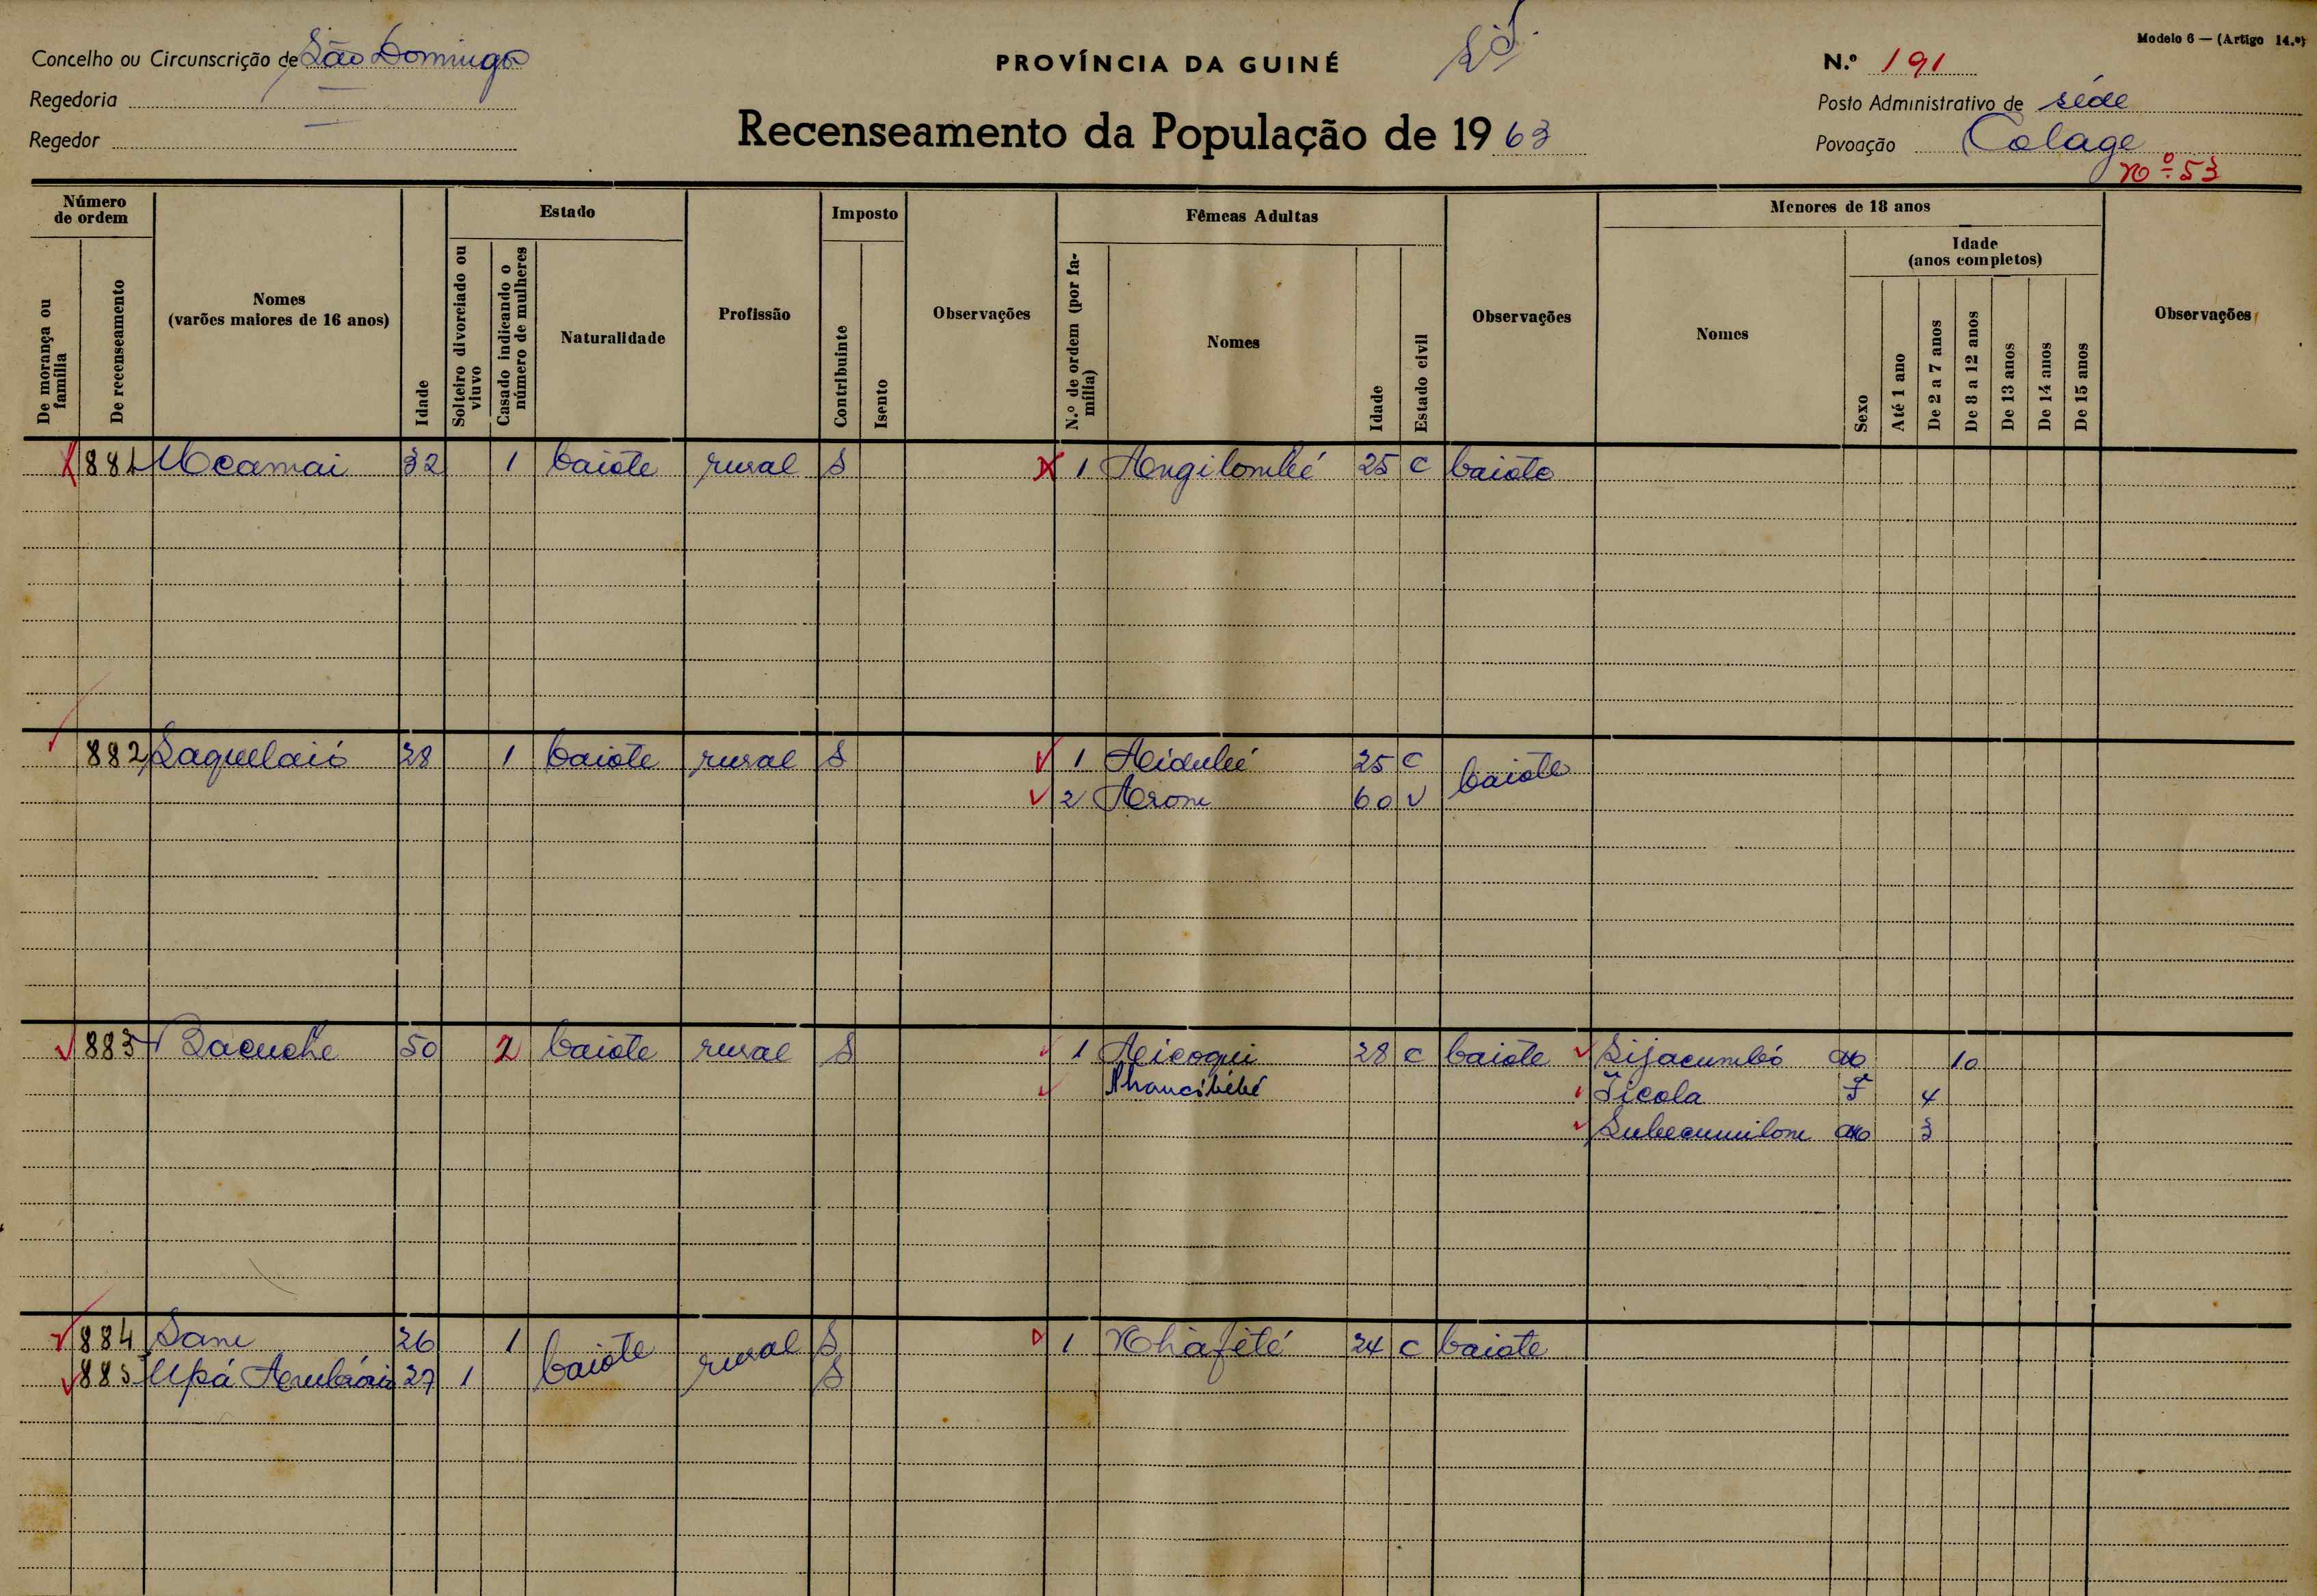 Modelo 6 — (Artigo 14.º)
Concelho ou Circunscrição de São Domingos
PROVÍNCIA DA GUINÉ
N.º 191
Regedoria —
Posto Administrativo de séde
Regedor —
Recenseamento da População de 1963
Povoação Colage
nº 53
Número de ordem
Estado
Imposto
Fêmeas Adultas
Menores de 18 anos
De morança ou família
De recenseamento
Nomes (varões maiores de 16 anos)
Idade
Solteiro divorciado ou viuvo
Casado indicando o número de mulheres
Naturalidade
Profissão
Contribuinte
Isento
Observações
N.º de ordem (por família)
Nomes
Idade
Estado civil
Observações
Nomes
Sexo
Idade (anos completos)
Até 1 ano
De 2 a 7 anos
De 8 a 12 anos
De 13 anos
De 14 anos
De 15 anos
Observações
881 Ucamai 32 1 baiote rural S 1 Angilombé 25 C baiote
882 Saquelaió 28 1 baiote rural S 1 Aidubé 25 C baiote
2 Arom 60 V
883 Bacuche 50 2 baiote rural S 1 Aicoqui 28 C baiote Sijacumbó M 10
Nhancibébé Ficola F 4
Subecumilom M 3
884 Sane 26 1 baiote rural S 1 Nhàfêté 24 C baiote
885 Upá 27 1 S